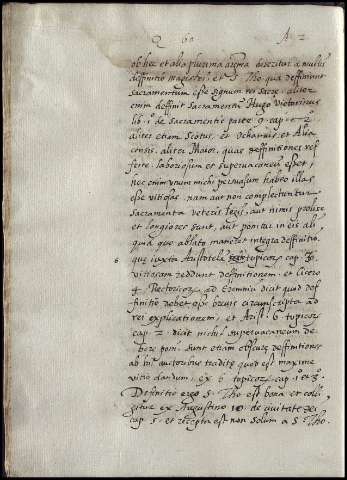 Q 60 A. 2
ob hec et alia plurima a multis
deffinitio magistri et S. Tho. qua deffiniunt
sacramentum esse signum rei sacre. aliter
enim deffinit sacramentum Hugo Victorinus
lib. 1º de Sacramentis parte 9. cap. 2
aliter etiam Scotus, et Ochamus et Alia
censis, aliter Maior, quas deffinitiones ref
ferre laboriosum et supervacaneum esset,
hec enim unum michi persuasum habeo illas
esse vitiosas, nam aut non complectuntur
sacramenta veteris legis, aut nimis prolixe
et longiores sunt, aut ponitur in eis ali
qua que ablato manet integra deffinitio,
que iuxta Aristotele topicor. cap. 3º
6
vitiatam reddunt definitionem, et Cicero
4. Rectoricor. ad Erennium dicit quod def
finitio debet esse brevis circunscripta ad
rei explicationem, et Arist. 6 topicor.
cap. 2. dicit nichil supervacaneum de
bere poni. sunt etiam obscure deffinitiones
ab his auctoribus tradite quod est maxime
vitio dandum, ex 6 topicor. cap. 1º et 3º.
Definitio ergo S. Tho. est bona et colli
gitur ex Augustino 10. de civitate dei
cap. 5. et recepta est non solum a S. Tho.